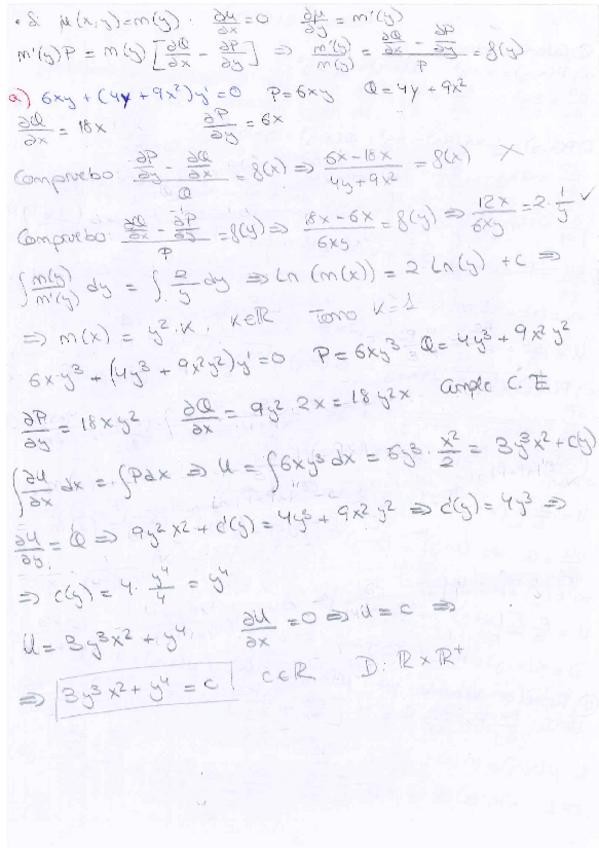 • Si μ(x,y)=m(y). ∂μ/∂x = 0 ∂μ/∂y = m'(y)
m'(y)P = m(y) [∂Q/∂x - ∂P/∂y] ⇒ m'(y)/m(y) = (∂Q/∂x - ∂P/∂y)/P = g(y)
a) 6xy + (4y + 9x²)y' = 0 P = 6xy Q = 4y + 9x²
∂Q/∂x = 18x ∂P/∂y = 6x
Compruebo: (∂P/∂y - ∂Q/∂x)/Q = g(x) ⇒ (6x - 18x)/(4y + 9x²) = g(x) X
Compruebo: (∂Q/∂x - ∂P/∂y)/P = g(y) ⇒ (18x - 6x)/6xy = g(y) ⇒ 12x/6xy = 2 · 1/y ✓
∫ m(y)/m'(y) dy = ∫ 2/y dy ⇒ Ln (m(x)) = 2 Ln(y) + c ⇒
⇒ m(x) = y² · K. K∈ℝ Tomo K=1
6xy³ + (4y³ + 9x²y²)y' = 0 P = 6xy³ Q = 4y³ + 9x²y²
∂P/∂y = 18xy² ∂Q/∂x = 9y² · 2x = 18y²x. Cumple C.E
∫ ∂U/∂x dx = ∫ Pdx ⇒ U = ∫ 6xy³ dx = 6y³ · x²/2 = 3y³x² + c(y)
∂U/∂y = Q ⇒ 9y²x² + c'(y) = 4y³ + 9x²y² ⇒ c'(y) = 4y³ ⇒
⇒ c(y) = 4 · y⁴/4 = y⁴
U = 3y³x² + y⁴ ∂U/∂x = 0 ⇒ U = c ⇒
⇒ 3y³x² + y⁴ = c c∈ℝ D: ℝ x ℝ⁺